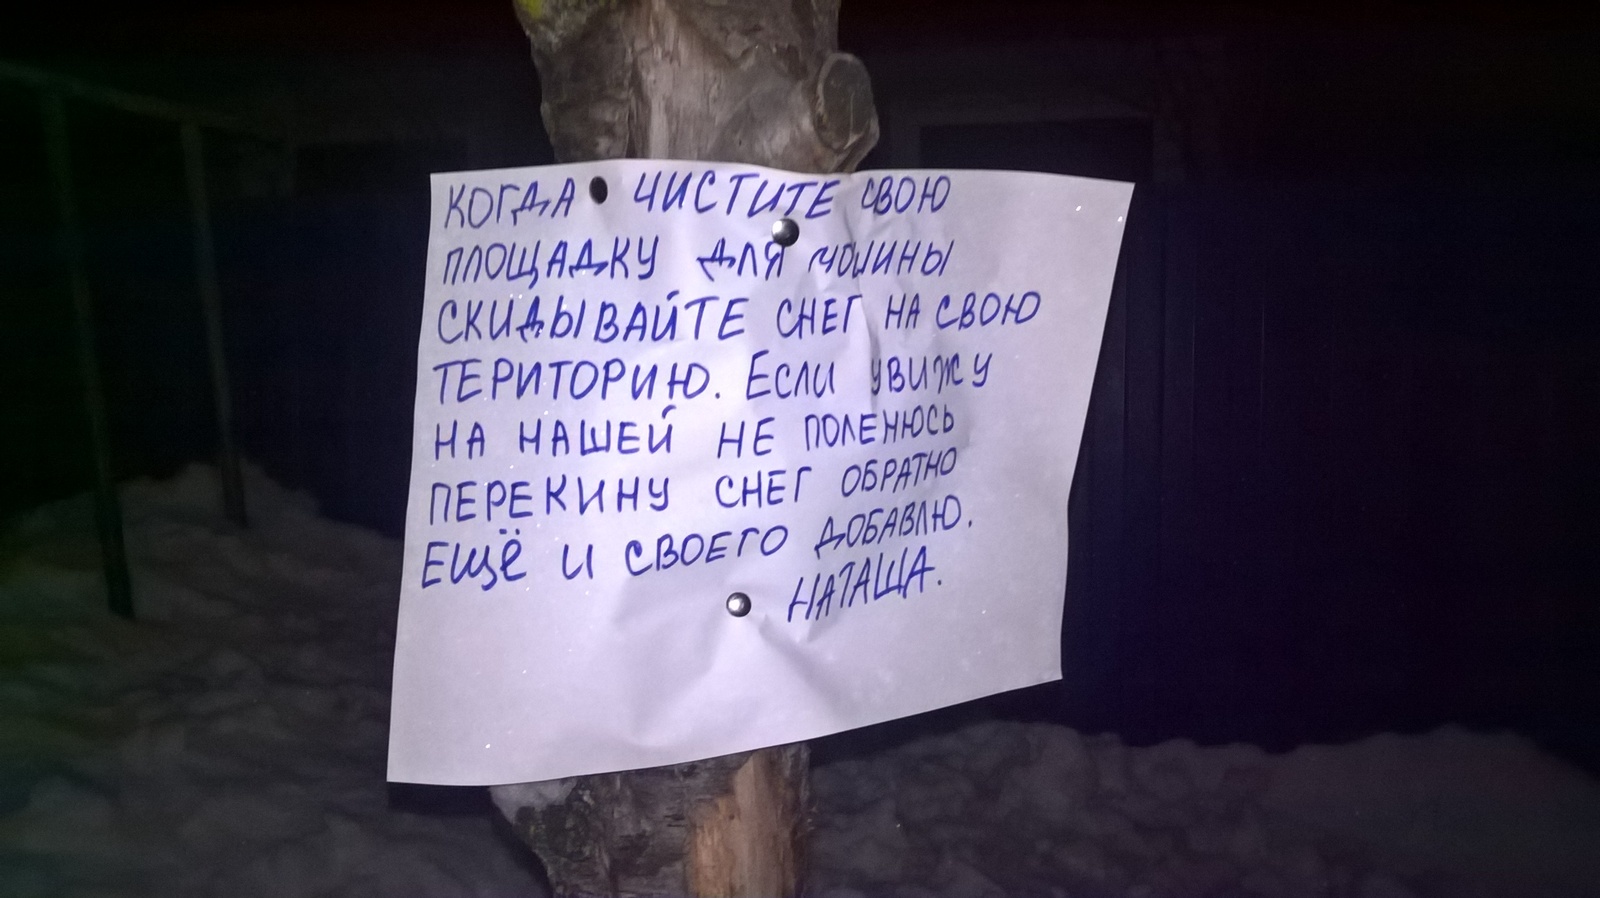 КОГДА ЧИСТИТЕ СВОЮ
ПЛОЩАДКУ ДЛЯ МОШИНЫ
СКИДЫВАЙТЕ СНЕГ НА СВОЮ
ТЕРИТОРИЮ. ЕСЛИ УВИЖУ
НА НАШЕЙ НЕ ПОЛЕНЮСЬ
ПЕРЕКИНУ СНЕГ ОБРАТНО
ЕЩЁ И СВОЕГО ДОБАВЛЮ.
НАТАША.